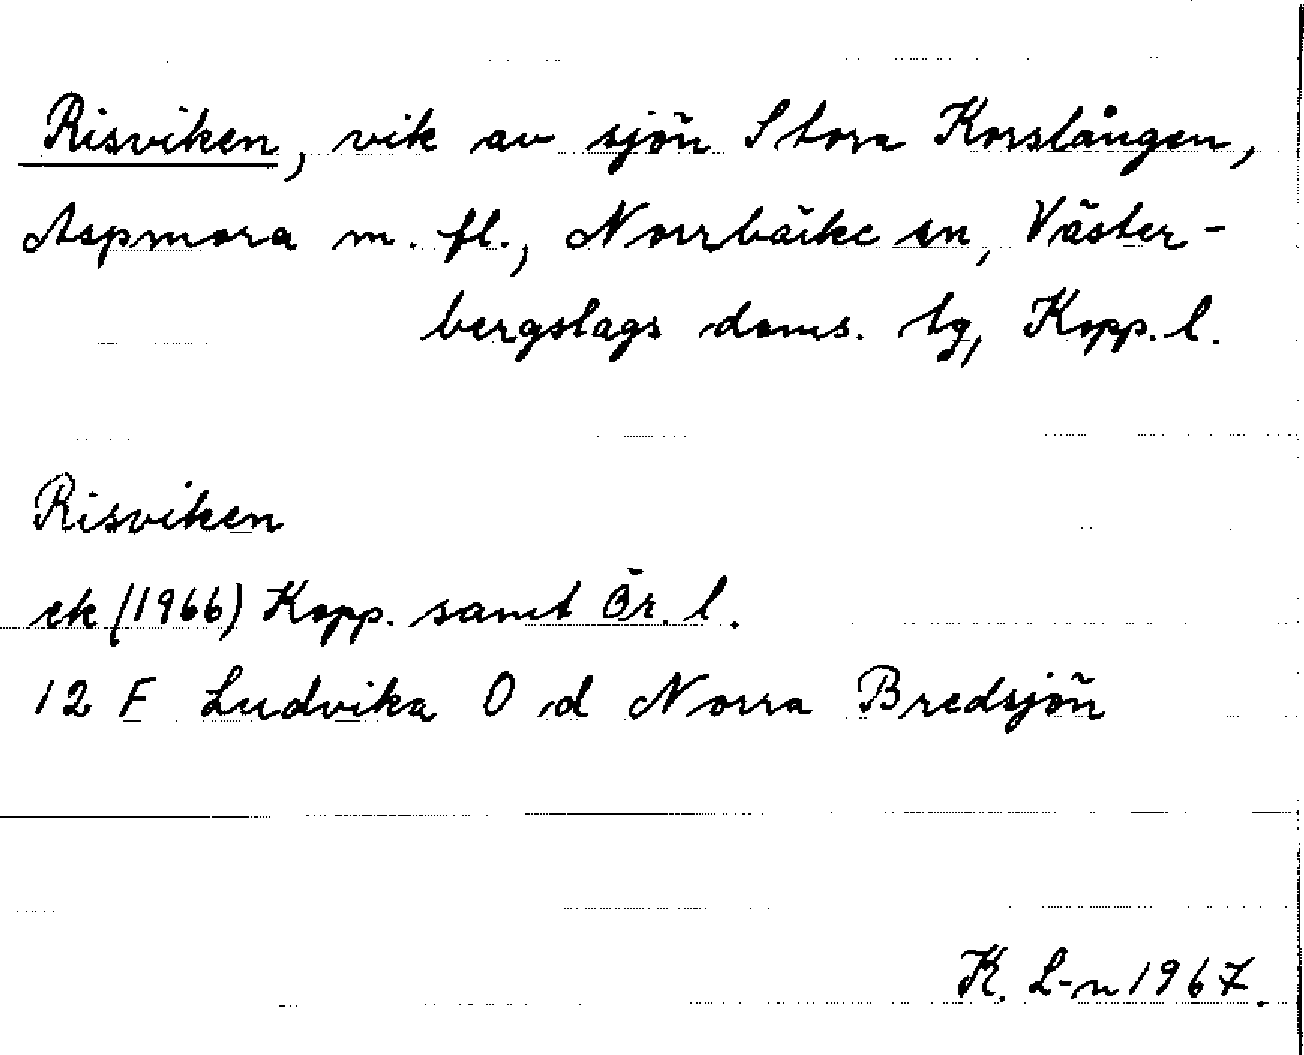 Risviken, vik av sjön Stora Korslången,
Aspmora m. fl., Norrbärke sn, Väster-
bergslags doms. tg, Kopp. l.
Risviken
ek (1966) Kopp. samt Ör. l.
12 F Ludvika 0 d Norra Bredsjön
K. L-n 1967.